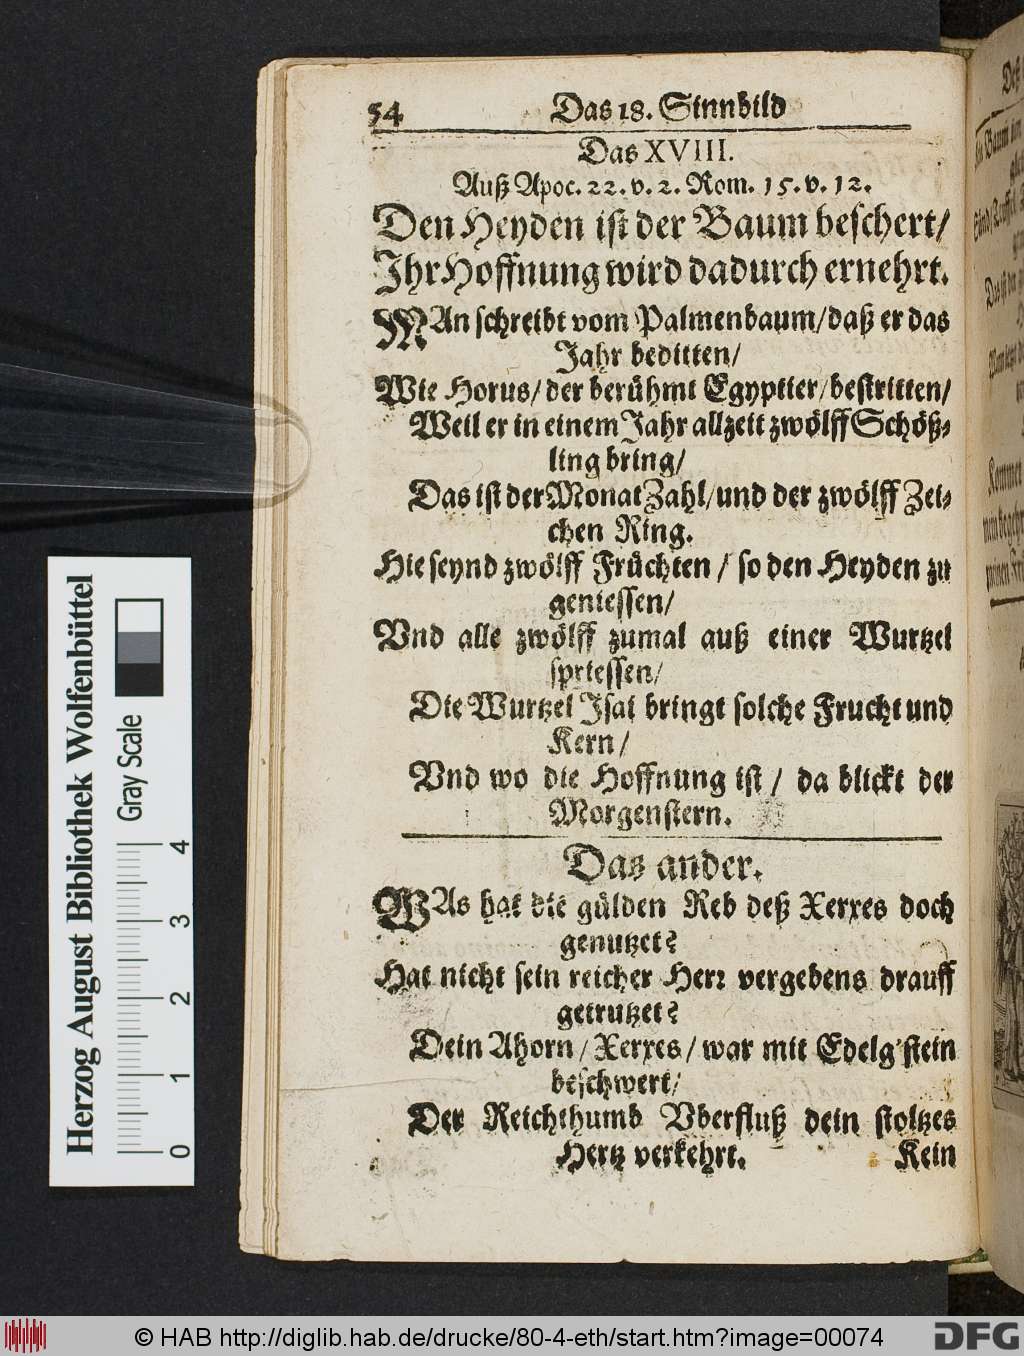 54 Das 18. Sinnbild
Das XVIII.
Auß Apoc. 22. v. 2. Rom. 15. v. 12.
Den Heyden ist der Baum beschert/
Ihr Hoffnung wird dadurch ernehrt.
MAn schreibt vom Palmenbaum/daß er das
Jahr beditten/
Wie Horus/ der berühmt Egyptier/ bestritten/
Weil er in einem Jahr allzeit zwölff Schöß-
ling bring/
Das ist der Monat Zahl/und der zwölff Zei-
chen Ring.
Hie seynd zwölff Früchten / so den Heyden zu
geniessen/
Vnd alle zwölff zumal auß einer Wurtzel
spriessen/
Die Wurtzel Isai bringt solche Frucht und
Kern/
Vnd wo die Hoffnung ist / da blickt der
Morgenstern.
Das ander.
WAs hat die gülden Reb deß Xerxes doch
genutzet?
Hat nicht sein reicher Herr vergebens drauff
getrutzet?
Dein Ahorn / Xerxes / war mit Edelg'stein
beschwert/
Der Reichthumb Vberfluß dein stoltzes
Hertz verkehrt. Kein
Herzog August Bibliothek Wolfenbüttel
Gray Scale
0 1 2 3 4
© HAB http://diglib.hab.de/drucke/80-4-eth/start.htm?image=00074
DFG